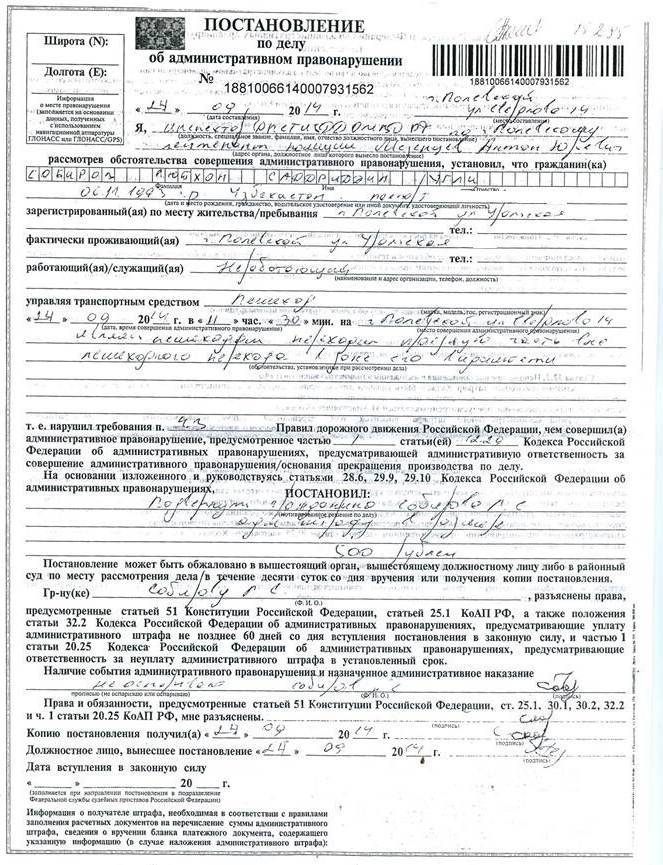 ПОСТАНОВЛЕНИЕ
по делу
об административном правонарушении
Широта (N):
Долгота (E):
Информация
о месте правонарушения
(заполняется на основании
данных, полученных
с использованием
навигационной аппаратуры
ГЛОНАСС или ГЛОНАСС/GPS)
№
18810066140007931562
18810066140007931562
« 24 » 09 2014 г. г. Полевской
(дата составления) (место составления)
Я,
(должность, специальное звание, фамилия, имя, отчество должностного лица, вынесшего постановление)
(адрес органа, должностное лицо которого вынесло постановление)
рассмотрев обстоятельства совершения административного правонарушения, установил, что гражданин(ка)
СОБИРОВ САДОРИДДИН УГЛИ
Фамилия Имя Отчество
06.11.1993 г.р. Узбекистан
(дата и место рождения, гражданство, водительское удостоверение или иной документ, удостоверяющий личность)
зарегистрированный(ая) по месту жительства/пребывания г. Полевской ул.
тел.:
фактически проживающий(ая) г. Полевской ул.
тел.:
работающий(ая)/служащий(ая) Неработающий
(наименование и адрес организации, телефон, должность)
управляя транспортным средством Пешеход
(марка, модель, гос. регистрационный знак)
« 24 » 09 2014 г. в « 11 » час. « 30 » мин. на г. Полевской ул. 14
(дата, время совершения административного правонарушения) (место совершения административного правонарушения)
пешеходом переходил проезжую часть вне
пешеходного перехода в зоне его видимости
(обстоятельства, установленные при рассмотрении дела)
т. е. нарушил требования п. 4.3 Правил дорожного движения Российской Федерации, чем совершил(а)
административное правонарушение, предусмотренное частью 1 статьи(ей) 12.29 Кодекса Российской
Федерации об административных правонарушениях, предусматривающей административную ответственность за
совершение административного правонарушения/основания прекращения производства по делу.
На основании изложенного и руководствуясь статьями 28.6, 29.9, 29.10 Кодекса Российской Федерации об
административных правонарушениях,
ПОСТАНОВИЛ:
Подвергнуть гражданина Собирова Р С
(мотивированное решение по делу)
адм штрафу в размере
500 рублей
Постановление может быть обжаловано в вышестоящий орган, вышестоящему должностному лицу либо в районный
суд по месту рассмотрения дела в течение десяти суток со дня вручения или получения копии постановления.
Гр-ну(ке) Собирову Р С , разъяснены права,
(Ф. И. О.)
предусмотренные статьей 51 Конституции Российской Федерации, статьей 25.1 КоАП РФ, а также положения
статьи 32.2 Кодекса Российской Федерации об административных правонарушениях, предусматривающие уплату
административного штрафа не позднее 60 дней со дня вступления постановления в законную силу, и частью 1
статьи 20.25 Кодекса Российской Федерации об административных правонарушениях, предусматривающей
ответственность за неуплату административного штрафа в установленный срок.
Наличие события административного правонарушения и назначенное административное наказание
не оспариваю Собиров
прописью (не оспариваю или оспариваю) (Ф. И. О.) (подпись)
Права и обязанности, предусмотренные статьей 51 Конституции Российской Федерации, ст. 25.1, 30.1, 30.2, 32.2
и ч. 1 статьи 20.25 КоАП РФ, мне разъяснены.
(подпись)
Копию постановления получил(а) « 24 » 09 2014 г.
(подпись)
Должностное лицо, вынесшее постановление « 24 » 09 2014 г.
(подпись)
Дата вступления в законную силу
« » 20 г.
(заполняется при направлении постановления в подразделение
Федеральной службы судебных приставов Российской Федерации)
Информация о получателе штрафа, необходимая в соответствии с правилами
заполнения расчетных документов на перечисление суммы административного
штрафа, сведения о вручении бланка платежного документа, содержащего
указанную информацию (в случае наложения административного штрафа):